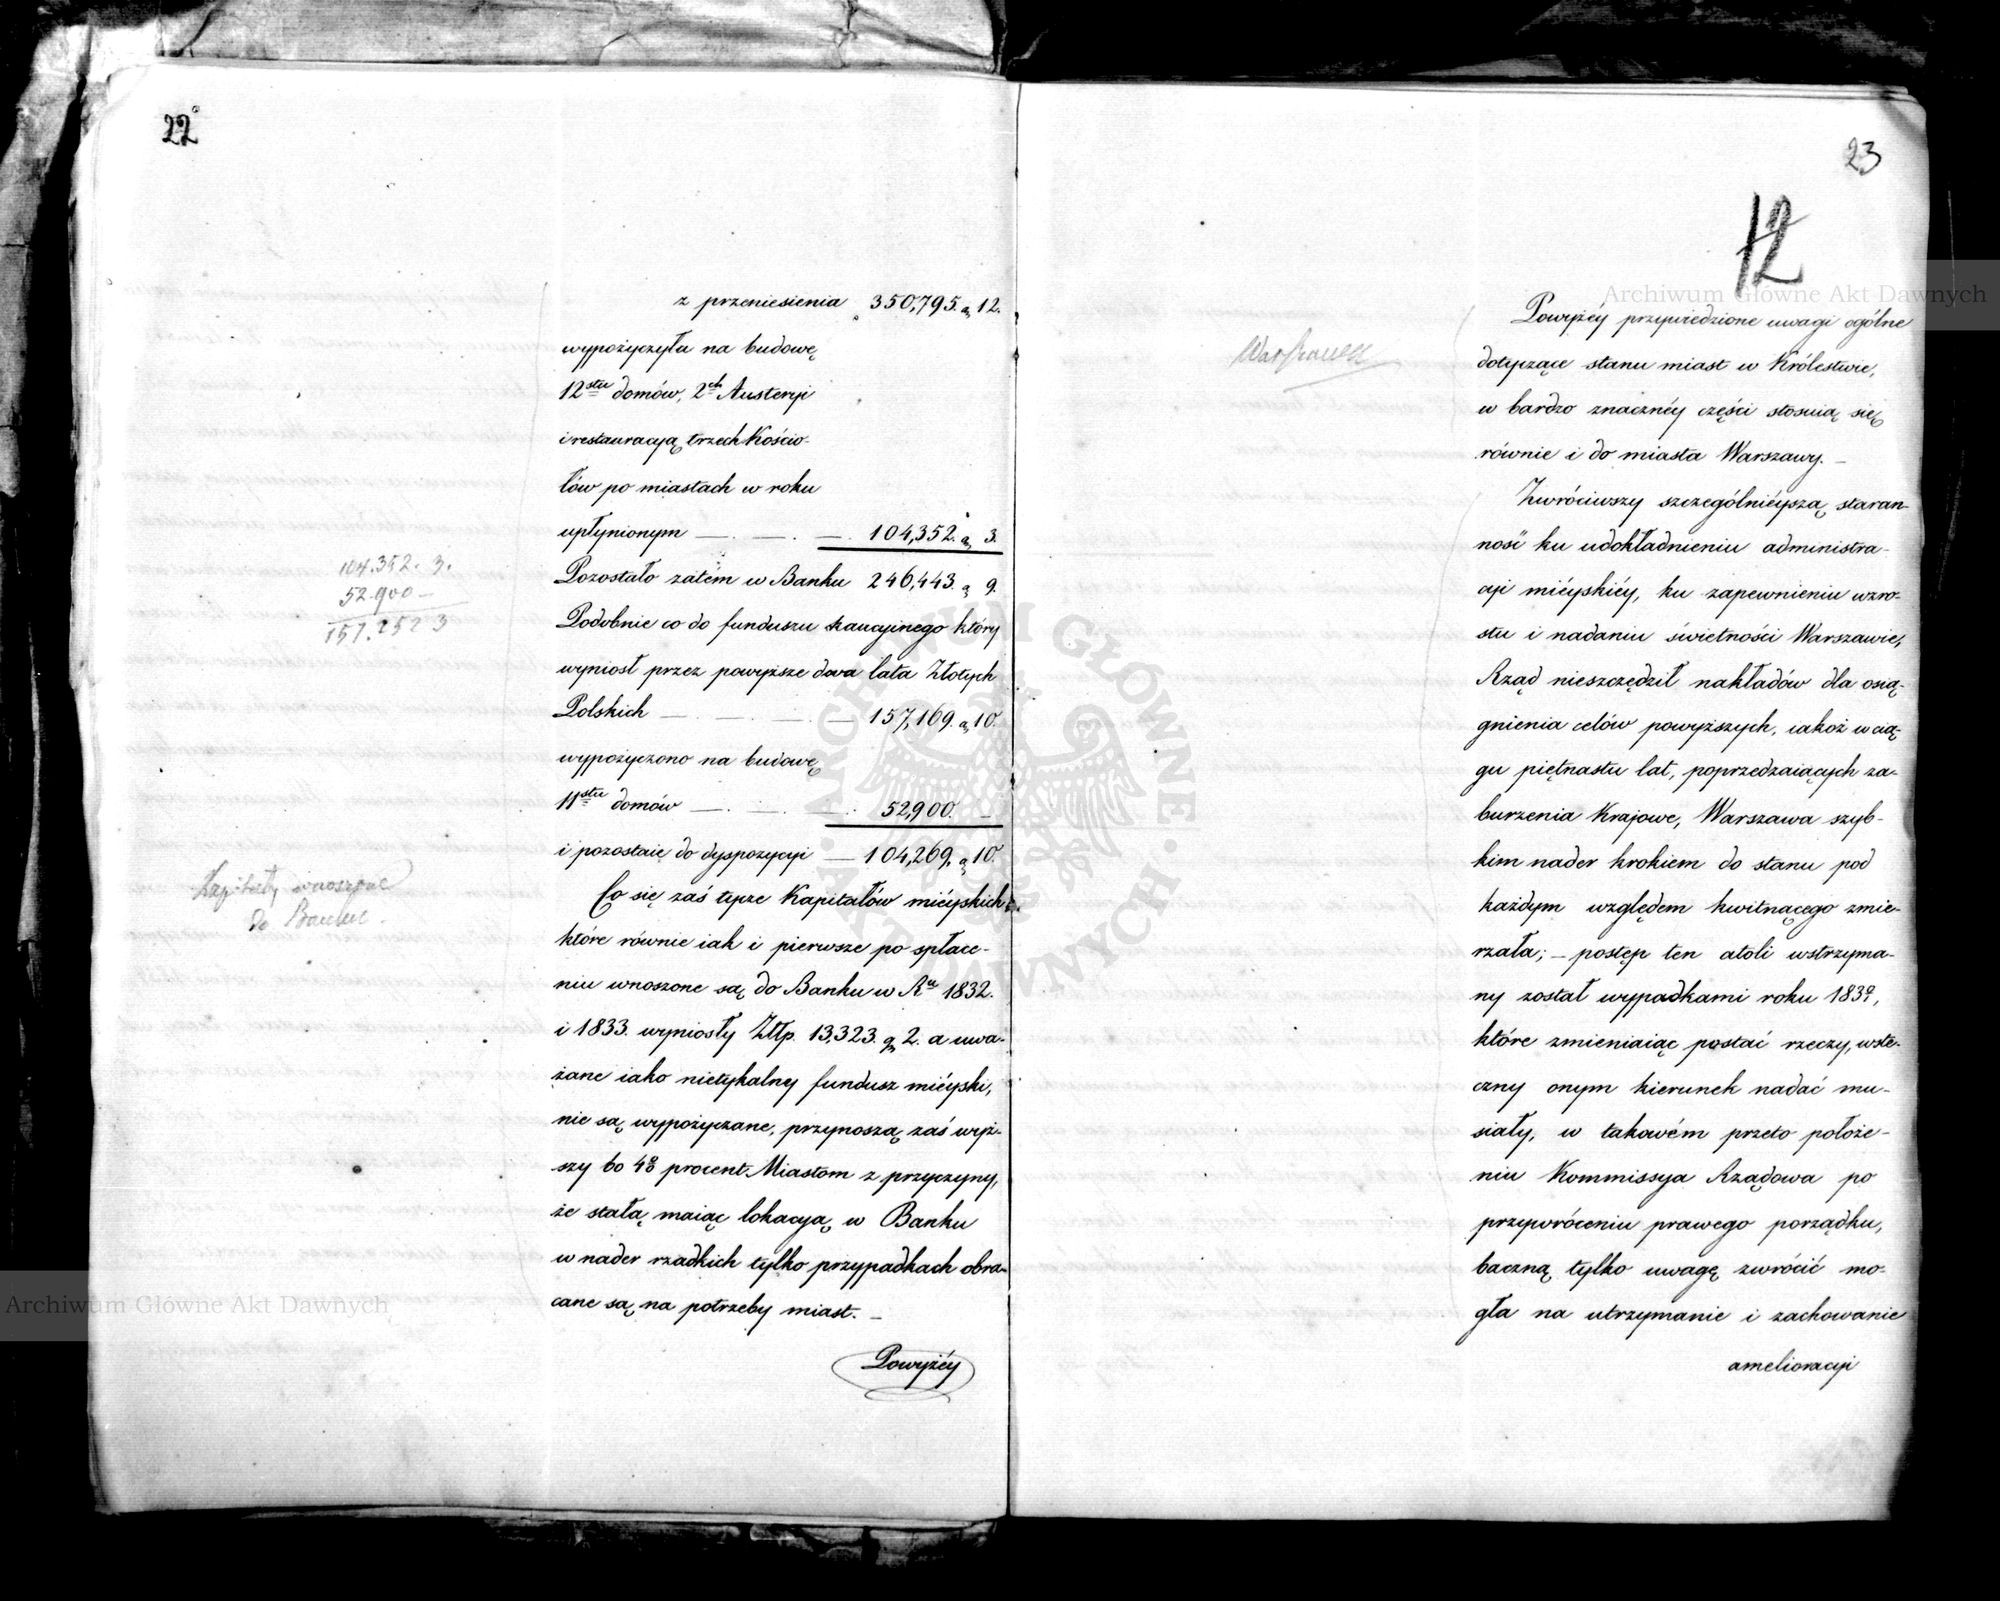 22
z przeniesienia 350,795. g 12.
wypożyczyła na budowę
12stu domów, 2ch Austeryi
i restauracyą trzech Kościo-
łów po miastach w roku
upłynionym — — — 104,352. g 3.
Pozostało zatém w Banku 246,443. g 9.
Podobnie co do funduszu kaucyinego który
wyniosł przez powyższe dwa lata Złotych
Polskich — — — 157,169. g 10.
wypożyczono na budowę
11stu domów — — — 52,900. —
i pozostaie do dyspozycyi — 104,269. g 10.
Co się zaś tycze Kapitałów mieyskich
które równie iak i pierwsze po spłace-
niu wnoszone są do Banku w Ru 1832.
i 1833. wyniosły Złtp. 13,323. g 2. a uwa-
żane iako nietykalny fundusz miéyski,
nie są wypożyczane, przynoszą zaś wyż-
szy bo 4% procent Miastom z przyczyny,
że stałą maiąc lokacyą w Banku
w nader rzadkich tylko przypadkach obra-
cane są na potrzeby miast. —
Powyżéy
104.352. 3.
52.900 —
157.252 3
Kapitały wnoszone
do Banku.
23
12
Warszawa
Powyżéy przywiedzione uwagi ogólne
dotyczące stanu miast w Królestwie,
w bardzo znacznéy części stosuią się
równie i do miasta Warszawy. —
Zwróciwszy szczególniéyszą staran-
ność ku udokładnieniu administra-
cyi miéyskiéy, ku zapewnieniu wzro-
stu i nadaniu świetności Warszawie,
Rząd nieszczędził nakładów dla osią-
gnienia celów powyższych, iakoż w cią-
gu piętnastu lat, poprzedzaiących za-
burzenia Krajowe, Warszawa szyb-
kim nader krokiem do stanu pod
każdym względem kwitnącego zmie-
rzała; — postęp ten atoli wstrzyma-
ny został wypadkami roku 1830,
które zmieniaiąc postać rzeczy, wste-
czny onym kierunek nadać mu-
siały, w takowém przeto położe-
niu Kommissya Rządowa po
przywróceniu prawego porządku,
baczną tylko uwagę zwrócić mo-
gła na utrzymanie i zachowanie
amelioracyi
Archiwum Główne Akt Dawnych
Archiwum Główne Akt Dawnych
ARCHIWUM GŁÓWNE AKT DAWNYCH